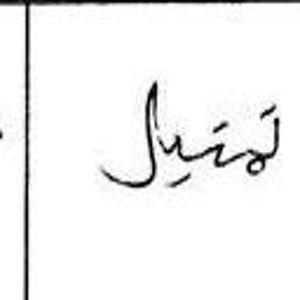 تمثيل